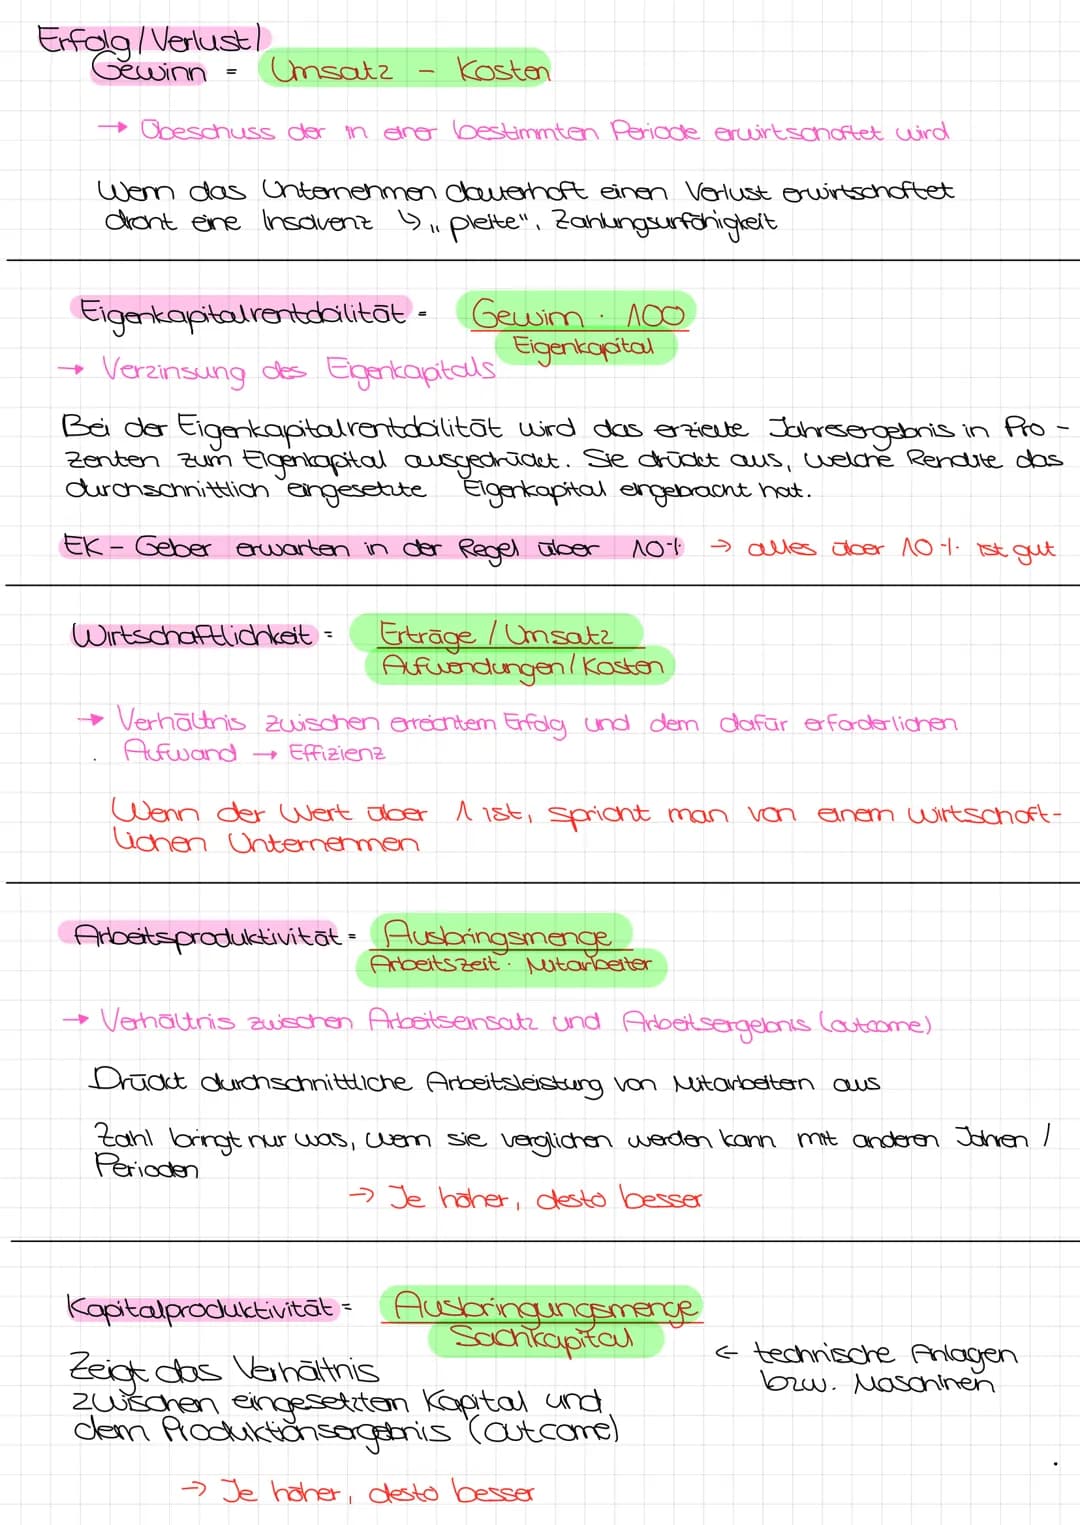 Erfolg / Verlust /
Gewinn = Umsatz - Kosten
→ Übeschuss der in einer bestimmten Periode erwirtschaftet wird
Wenn das Unternehmen dauerhaft einen Verlust erwirtschaftet
droht eine Insolvenz ↳ „pleite", Zahlungsunfähigkeit
Eigenkapitalrentabilität = Gewinn · 100
Eigenkapital
→ Verzinsung des Eigenkapitals
Bei der Eigenkapitalrentabilität wird das erzielte Jahresergebnis in Pro-
zenten zum Eigenkapital ausgedrückt. Sie drückt aus, welche Rendite das
durchschnittlich eingesetzte Eigenkapital eingebracht hat.
EK - Geber erwarten in der Regel über 10% → alles über 10% ist gut
Wirtschaftlichkeit = Erträge / Umsatz
Aufwendungen / Kosten
→ Verhältnis zwischen erreichtem Erfolg und dem dafür erforderlichen
Aufwand → Effizienz
Wenn der Wert über 1 ist, spricht man von einem wirtschaft-
lichen Unternehmen
Arbeitsproduktivität = Ausbringsmenge
Arbeitszeit · Mitarbeiter
→ Verhältnis zwischen Arbeitseinsatz und Arbeitsergebnis (outcome)
Drückt durchschnittliche Arbeitsleistung von Mitarbeitern aus
Zahl bringt nur was, wenn sie verglichen werden kann mit anderen Jahren /
Perioden
→ Je höher, desto besser
Kapitalproduktivität = Ausbringungsmenge
Sachkapital
← technische Anlagen
bzw. Maschinen
Zeigt das Verhältnis
zwischen eingesetztem Kapital und
dem Produktionsergebnis (outcome)
→ Je höher, desto besser